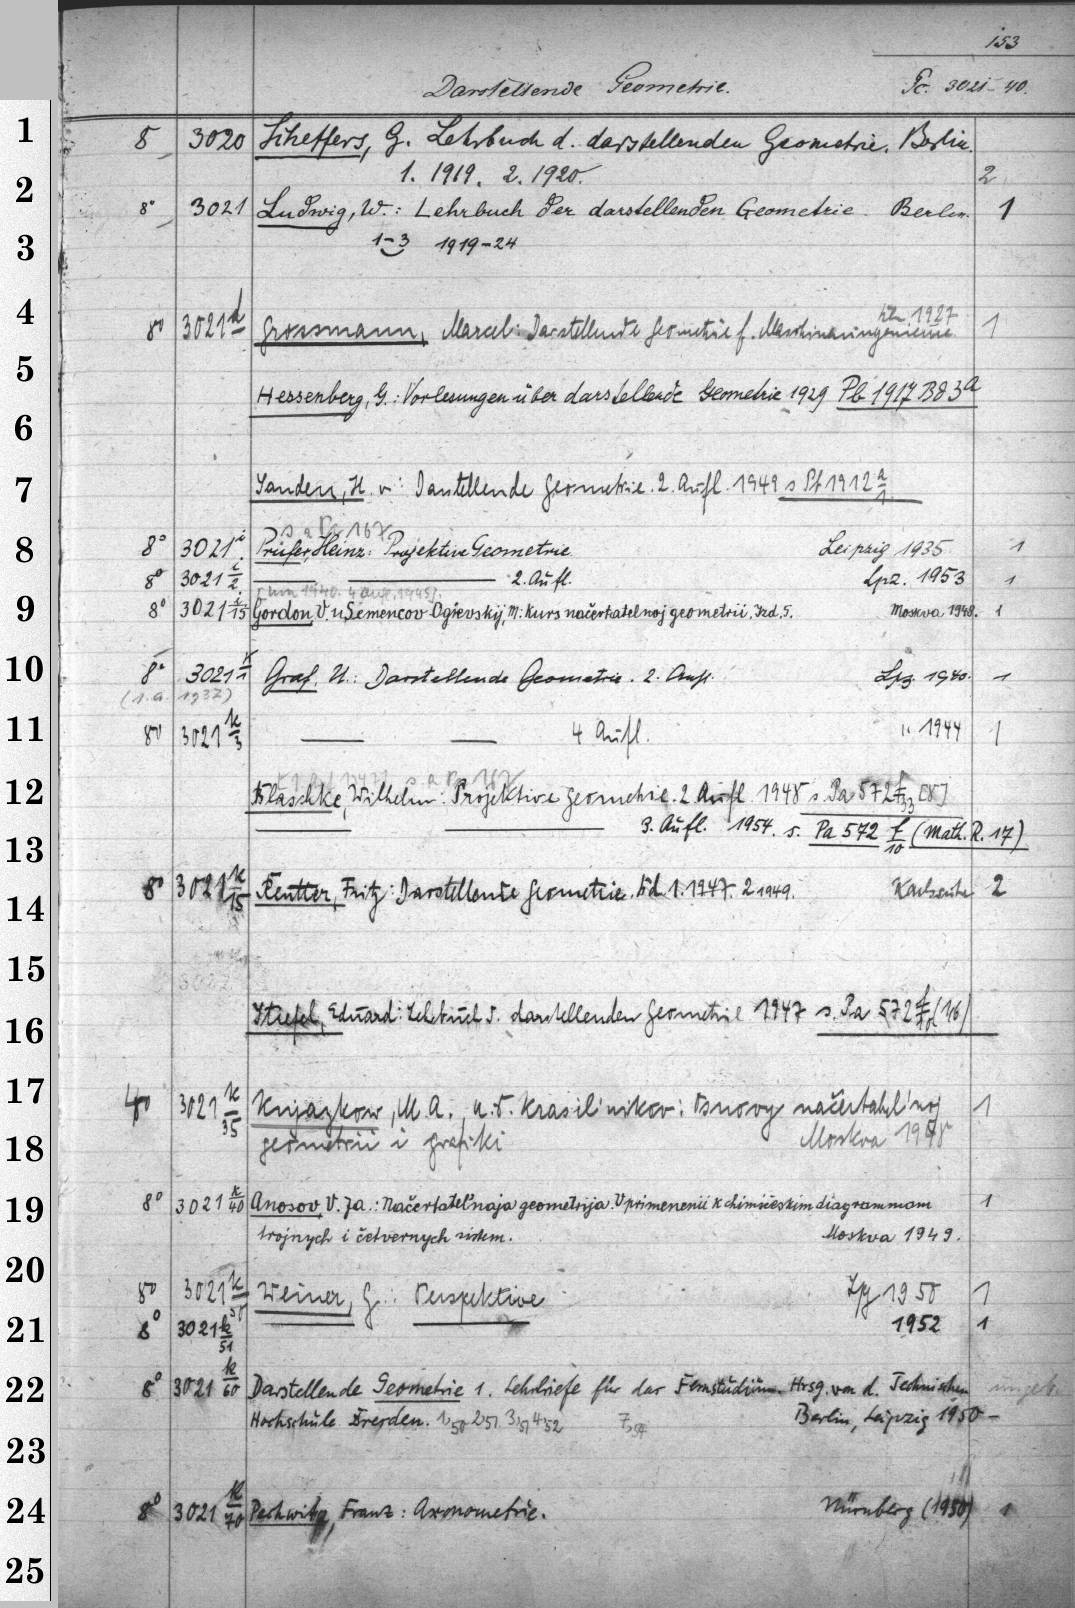 153
Darstellende Geometrie. Pc. 3021-40.
1
8 3020 Scheffers, G. Lehrbuch d. darstellenden Geometrie. Berlin.
1. 1919. 2. 1920. 2
2
8° 3021 Ludwig, W.: Lehrbuch der darstellenden Geometrie. Berlin. 1
3
1-3 1919-24
4
1927
8° 3021 d Grossmann, Marcel: Darstellende Geometrie f. Maschineningenieure 1
5
Hessenberg, G.: Vorlesungen über darstellende Geometrie 1929 Pb 1917 B83a
6
7
Sanden, H. v.: Darstellende Geometrie. 2. Aufl. 1949 s Pb 1912 a/1
s a Pa 167
8
8° 3021 i Prüfer, Heinz: Projektive Geometrie Leipzig 1935. 1
8° 3021 i/2 — — 2. Aufl. Lpz. 1953 1
9
8° 3021 i/15 Gordon V. u Semencov-Ogievskij, M: Kurs načertatelnoj geometrii. Izd. 5. Moskva 1948. 1
10
8° 3021 k/1 Graf, U.: Darstellende Geometrie. 2. Aufl. Lpz. 1940. 1
(1. a. 1937)
11
8° 3021 k/3 — — 4 Aufl. " 1944 1
12
Blaschke, Wilhelm: Projektive Geometrie. 2 Aufl 1948 s. Pa 572 f/33 [8]
— — 3. Aufl. 1954. s. Pa 572 f/10 (Math. R. 17)
13
8° 3021 k/15 Reutter, Fritz: Darstellende Geometrie. Bd. 1. 1947. 2 1949. Karlsruhe 2
14
15
3022
16
Stiefel, Eduard: Lehrbuch d. darstellenden Geometrie 1947 s. Pa 572 (16)
17
4° 3021 k/35 Knjazkow, M A. u. V. Krasil'nikov: Osnovy načertatel'noj 1
18
geometrii i grafiki Moskva 1948
19
8° 3021 k/40 Anosov, V. Ja.: Načertatel'naja geometrija. V primenenii k chimičeskim diagrammam 1
trojnych i četvernych sistem. Moskva 1949.
20
8° 3021 k/50 Weiner, G.: Perspektive Lpz 1950 1
21
8° 3021 k/51 1952 1
22
8° 3021 k/60 Darstellende Geometrie 1. Lehrbriefe für das Fernstudium. Hrsg. von d. Technischen ungeb
Hochschule Dresden. 1,50 2,51 3,51 4,52 7,54 Berlin, Leipzig 1950-
23
24
8° 3021 k/70 Peschwitz, Franz: Axonometrie. Nürnberg (1950) 1
25